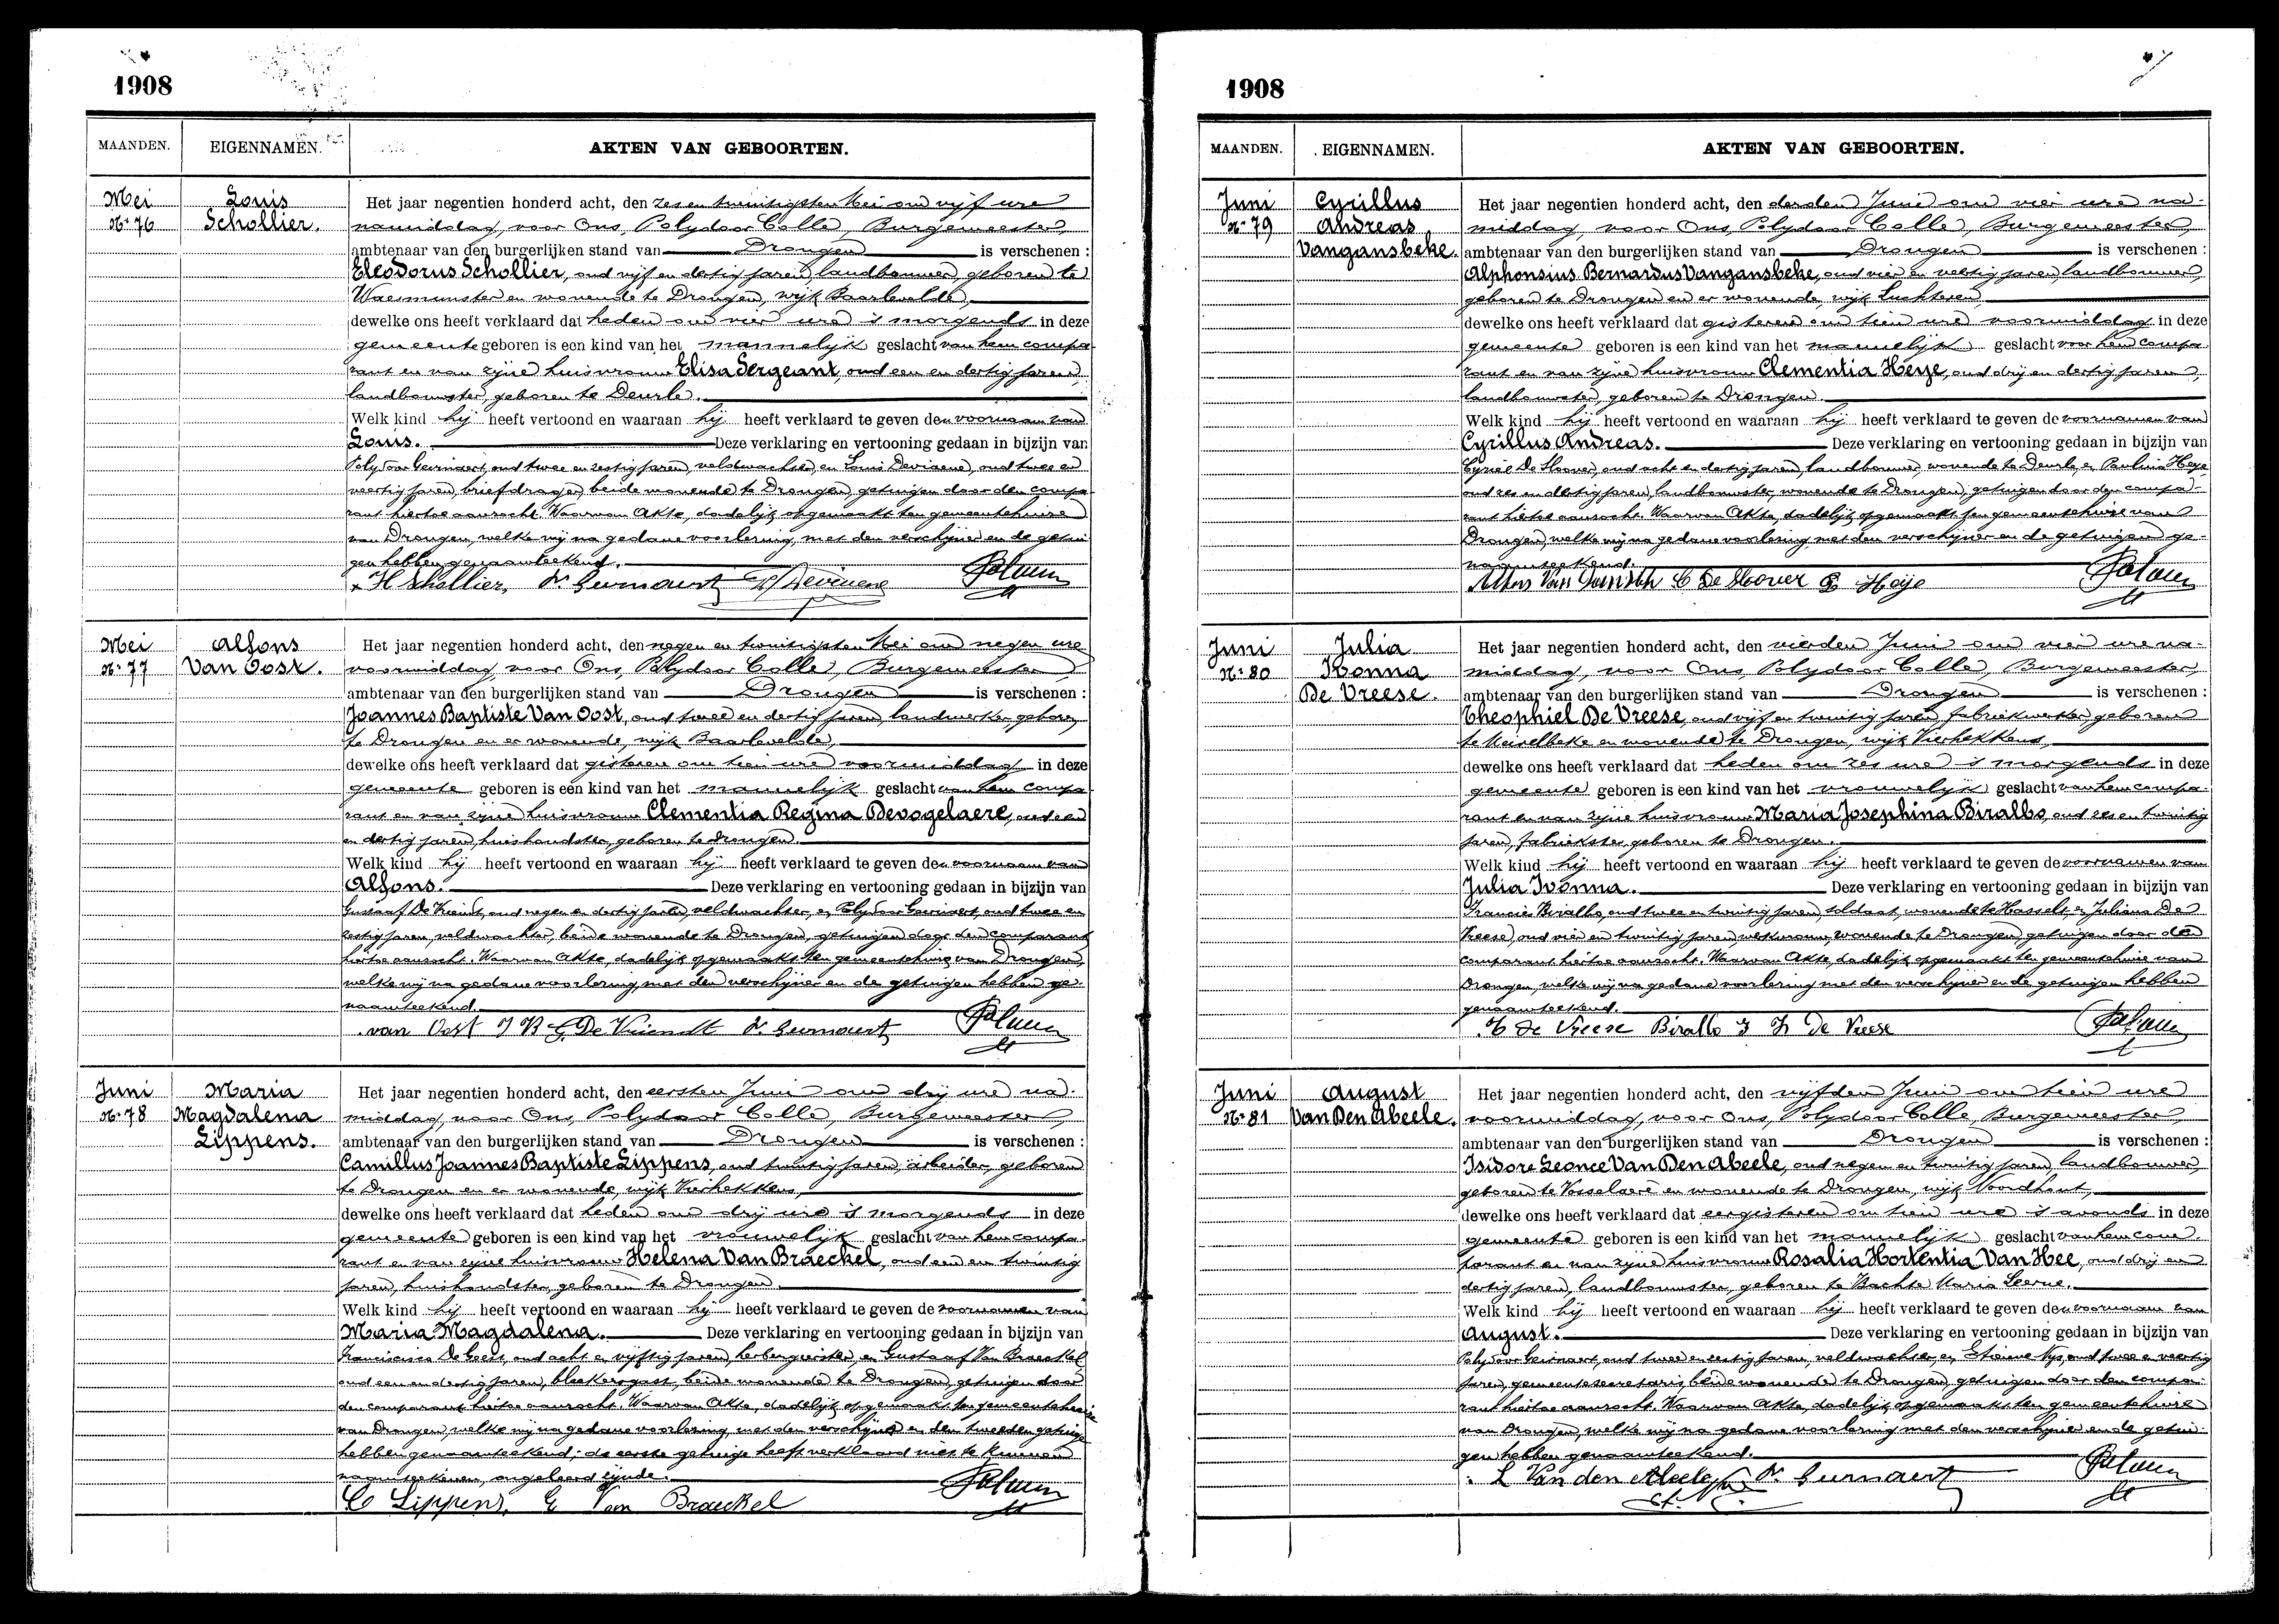 1908
MAANDEN. EIGENNAMEN. AKTEN VAN GEBOORTEN.
Mei
Nº 76
Louis
Schollier.
Het jaar negentien honderd acht, den zes en twintigsten Mei om vijf ure
namiddag, voor Ons, Polydoor Colle, Burgemeester,
ambtenaar van den burgerlijken stand van Drongen is verschenen :
Eleodorus Schollier, oud vijf en dertig jaren, landbouwer, geboren te
Waesmunster en wonende te Drongen, wijk Baarlevelde,
dewelke ons heeft verklaard dat heden om vier ure 's morgends in deze
gemeente geboren is een kind van het mannelijk geslacht van hem compa-
rant en van zijne huisvrouw Elisa Sergeant, oud een en dertig jaren,
landbouwster, geboren te Deurle.
Welk kind hij heeft vertoond en waaraan hij heeft verklaard te geven den voornaam van
Louis. Deze verklaring en vertooning gedaan in bijzijn van
Polydoor Gevernaert, oud twee en zestig jaren, veldwachter, en Louis Devisene, oud twee en
veertig jaren, briefdrager, beide wonende te Drongen, getuigen door den compa-
rant hiertoe aanzocht. Waarvan Akte, dadelijk opgemaakt ten gemeentehuize
van Drongen, welke wij na gedane voorlezing, met den verschijner en de getui-
gen hebben genaamteekend.
H Schollier,
Mei
Nº 77
Alfons
Van Oost.
Het jaar negentien honderd acht, den negen en twintigsten Mei om negen ure
voormiddag, voor Ons, Polydoor Colle, Burgemeester,
ambtenaar van den burgerlijken stand van Drongen is verschenen :
Joannes Baptiste Van Oost, oud twee en dertig jaren, landwerker, geboren
te Drongen en er wonende, wijk Baarlevelde,
dewelke ons heeft verklaard dat gisteren om tien ure voormiddag in deze
gemeente geboren is een kind van het mannelijk geslacht van hem compa-
rant en van zijne huisvrouw Clementia Regina Devogelaere, oud een
en dertig jaren, huishoudster, geboren te Drongen.
Welk kind hij heeft vertoond en waaraan hij heeft verklaard te geven den voornaam van
Alfons. Deze verklaring en vertooning gedaan in bijzijn van
Gustaaf De Vriendt, oud negen en dertig jaren, veldwachter, en Polydoor Gevernaert, oud twee en
zestig jaren, veldwachter, beide wonende te Drongen, getuigen door den comparant
hiertoe aanzocht. Waarvan Akte, dadelijk opgemaakt ten gemeentehuize van Drongen,
welke wij na gedane voorlezing, met den verschijner en de getuigen hebben ge-
naamteekend.
van Oost J B G. De Vriendt
Juni
Nº 78
Maria
Magdalena
Lippens.
Het jaar negentien honderd acht, den eersten Juni om drij ure na-
middag, voor Ons, Polydoor Colle, Burgemeester,
ambtenaar van den burgerlijken stand van Drongen is verschenen :
Camillus Joannes Baptiste Lippens, oud twintig jaren, arbeider, geboren
te Drongen en er wonende, wijk Vierhekkens,
dewelke ons heeft verklaard dat heden om drij ure 's morgends in deze
gemeente geboren is een kind van het vrouwelijk geslacht van hem compa-
rant en van zijne huisvrouw Helena Van Braeckel, oud een en twintig
jaren, huishoudster, geboren te Drongen.
Welk kind hij heeft vertoond en waaraan hij heeft verklaard te geven de voornamen van
Maria Magdalena. Deze verklaring en vertooning gedaan in bijzijn van
Franciscus De Geest, oud acht en vijftig jaren, herbergierster, en Gustaaf Van Braeckel
oud een en dertig jaren, bleekersgast, beide wonende te Drongen, getuigen door
den comparant hiertoe aanzocht. Waarvan Akte, dadelijk opgemaakt ten gemeentehuize
van Drongen, welke wij na gedane voorlezing, met den verschijner en den tweeden getuige
hebben genaamteekend; de eerste getuige heeft verklaard niet te kunnen
naamteekenen, ongeleerd zijnde.
C Lippens, G Van Braeckel
1908
MAANDEN. EIGENNAMEN. AKTEN VAN GEBOORTEN.
Juni
Nº 79
Cyrillus
Andreas
Vangansbeke.
Het jaar negentien honderd acht, den derden Juni om vier ure na-
middag, voor Ons, Polydoor Colle, Burgemeester,
ambtenaar van den burgerlijken stand van Drongen is verschenen :
Alphonsius Bernardus Vangansbeke, oud vier en veertig jaren, landbouwer,
geboren te Drongen en er wonende, wijk Luchteren,
dewelke ons heeft verklaard dat gisteren om tien ure voormiddag in deze
gemeente geboren is een kind van het mannelijk geslacht van hem compa-
rant en van zijne huisvrouw Clementia Heye, oud drij en dertig jaren,
landbouwster, geboren te Drongen.
Welk kind hij heeft vertoond en waaraan hij heeft verklaard te geven de voornamen van
Cyrillus Andreas. Deze verklaring en vertooning gedaan in bijzijn van
Cyriel De Sloover, oud acht en dertig jaren, landbouwer, wonende te Deurle en Paulina Heye
oud zes en dertig jaren, landbouwster, wonende te Drongen, getuigen door den compa-
rant hiertoe aanzocht. Waarvan Akte, dadelijk opgemaakt ten gemeentehuize van
Drongen, welke wij na gedane voorlezing, met den verschijner en de getuigen ge-
naamteekend.
C De Sloover P Heije
Juni
Nº 80
Julia
Ivonna
De Vreese.
Het jaar negentien honderd acht, den vierden Juni om vier ure na-
middag, voor Ons, Polydoor Colle, Burgemeester,
ambtenaar van den burgerlijken stand van Drongen is verschenen :
Theophiel De Vreese, oud vijf en twintig jaren, fabriekwerker, geboren
te Meirelbeke en wonende te Drongen, wijk Vierhekkens,
dewelke ons heeft verklaard dat heden om zes ure 's morgends in deze
gemeente geboren is een kind van het vrouwelijk geslacht van hem compa-
rant en van zijne huisvrouw Maria Josephina Birallo, oud zes en twintig
jaren, fabriekster, geboren te Drongen.
Welk kind hij heeft vertoond en waaraan hij heeft verklaard te geven de voornamen van
Julia Ivonna. Deze verklaring en vertooning gedaan in bijzijn van
Francies Birallo, oud twee en twintig jaren, soldaat, wonende te Hasselt, en Juliana De
Vreese, oud vier en twintig jaren, werkvrouw, wonende te Drongen, getuigen door den
comparant hiertoe aanzocht. Waarvan Akte, dadelijk opgemaakt ten gemeentehuize van
Drongen, welke wij na gedane voorlezing met den verschijner en de getuigen hebben
genaamteekend.
De Vreese Birallo De Vreese
Juni
Nº 81
August
Van Den Abeele.
Het jaar negentien honderd acht, den vijfden Juni om tien ure
voormiddag, voor Ons, Polydoor Colle, Burgemeester
ambtenaar van den burgerlijken stand van Drongen is verschenen :
Isidore Leonce Van Den Abeele, oud negen en twintig jaren, landbouwer,
geboren te Vosselaere en wonende te Drongen, wijk Noordhout,
dewelke ons heeft verklaard dat eergisteren om tien ure 's avonds in deze
gemeente geboren is een kind van het mannelijk geslacht van hem com-
parant en van zijne huisvrouw Rosalia Hortentia Van Hee, oud drij en
dertig jaren, landbouwster, geboren te Bachte Maria Leerne.
Welk kind hij heeft vertoond en waaraan hij heeft verklaard te geven den voornaam van
August. Deze verklaring en vertooning gedaan in bijzijn van
Polydoor Gevernaert, oud twee en zestig jaren, veldwachter, en Etienne Nys, oud twee en veertig
jaren, gemeentesecretaris, beide wonende te Drongen, getuigen door den compa-
rant hiertoe aanzocht. Waarvan Akte, dadelijk opgemaakt ten gemeentehuize
van Drongen, welke wij na gedane voorlezing met den verschijner en de getui-
gen hebben genaamteekend.
L Van den Abeele